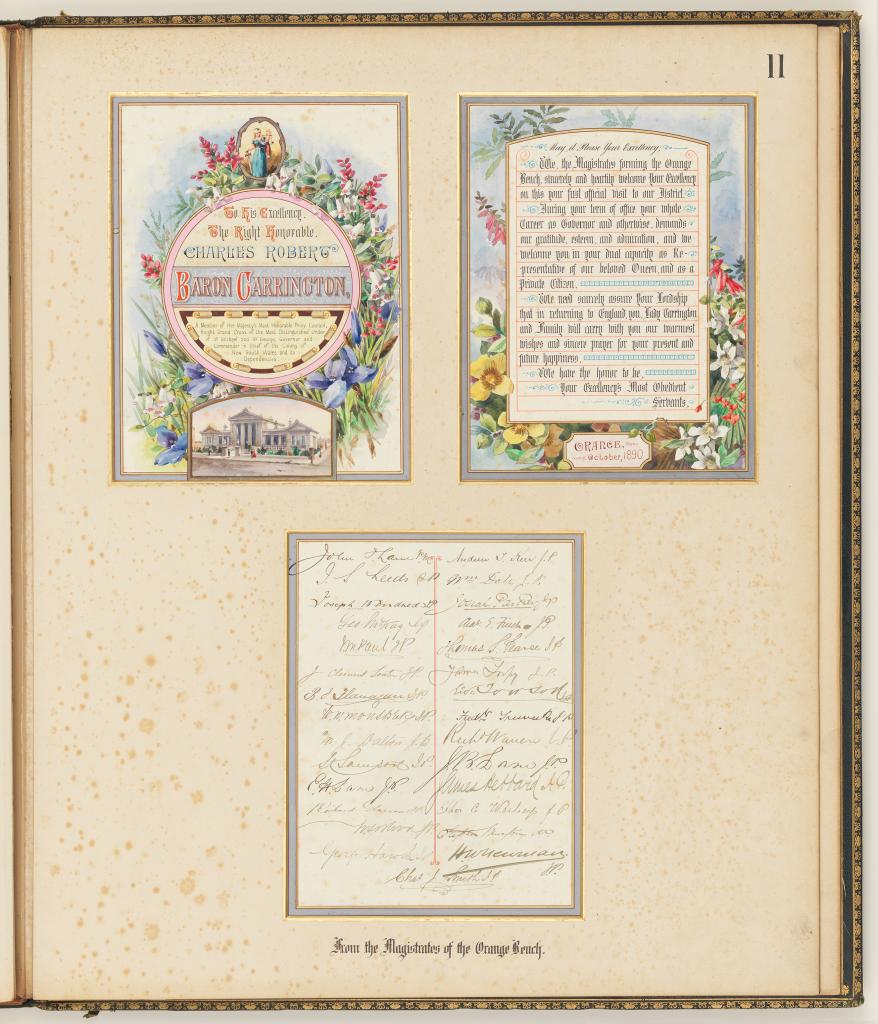 11
To His Excellency.
The Right Honorable.
CHARLES ROBERT
BARON CARRINGTON,
A Member of Her Majesty's Most Honorable Privy Council,
Knight Grand Cross of the Most Distinguished Order
of St Michael and St George, Governor and
Commander in Chief of the Colony of
New South Wales and its
Dependencies.
May it Please Your Excellency,
We, the Magistrates forming the Orange
Bench, sincerely and heartily welcome Your Excellency
on this your first official visit to our District.
During your term of office your whole
Career as Governor and otherwise, demands
our gratitude, esteem, and admiration, and we
welcome you in your dual capacity as Re-
presentative of our beloved Queen, and as a
Private Citizen.
We need scarcely assure Your Lordship
that in returning to England, you, Lady Carrington
and Family will carry with you our warmest
wishes and sincere prayer for your present and
future happiness.
We have the honor to be,
Your Excellency's Most Obedient
Servants.
ORANGE,
October, 1890.
John
Andrew T. Kerr J.P.
Wm Dale J.P.
Joseph
JP
Geo McKay JP
Wm Paul JP
Thomas S. Pearse JP
J Clement JP
James J.P.
Towson
W. J. Dalton J.P.
Richd Warren J.P.
JP
J. B. Lane JP
C. H. Lane JP
James Hebbard J.P.
Richard
J P
JP
George
H W Newman
JP
Chas J. Smith JP
From the Magistrates of the Orange Bench.